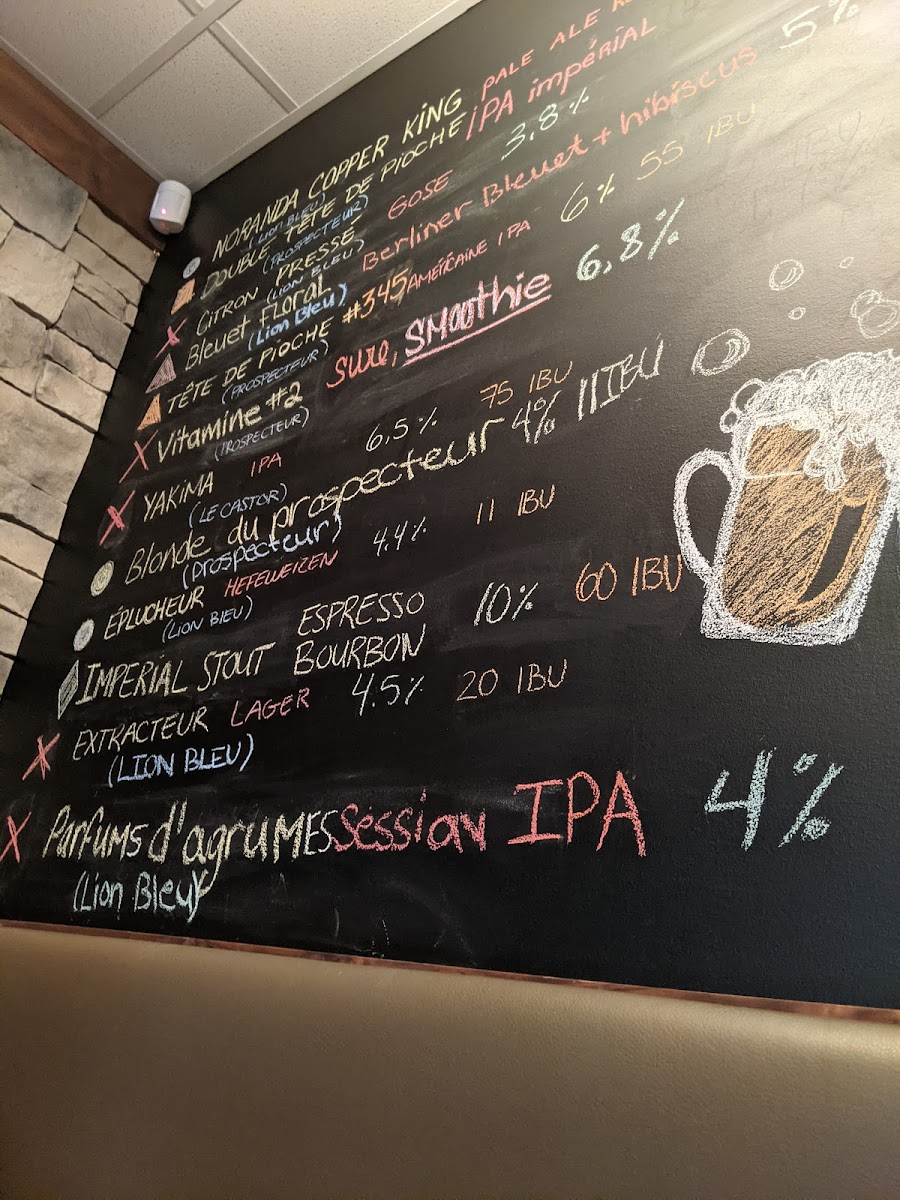 NORANDA COPPER KING PALE ALE
(LION BLEU)
DOUBLE TÊTE DE PIOCHE IPA impérial
(PROSPECTEUR)
CITRON PRESSE GOSE 3,8%
(LION BLEU)
Bleuet Floral Berliner Bleuet + hibiscus 5%
(Lion Bleu)
TÊTE DE PIOCHE #345 AMÉRICAINE IPA 6% 55 IBU
(PROSPECTEUR)
Vitamine #2 sure, smoothie 6,8%
(PROSPECTEUR)
YAKIMA IPA 6,5% 75 IBU
(LE CASTOR)
Blonde du prospecteur 4% 11 IBU
(prospecteur)
ÉPLUCHEUR HEFEWEIZEN 4.4% 11 IBU
(LION BLEU)
IMPERIAL STOUT ESPRESSO BOURBON 10% 60 IBU
EXTRACTEUR LAGER 4.5% 20 IBU
(LION BLEU)
Parfums d'agrumes Session IPA 4%
(Lion Bleu)